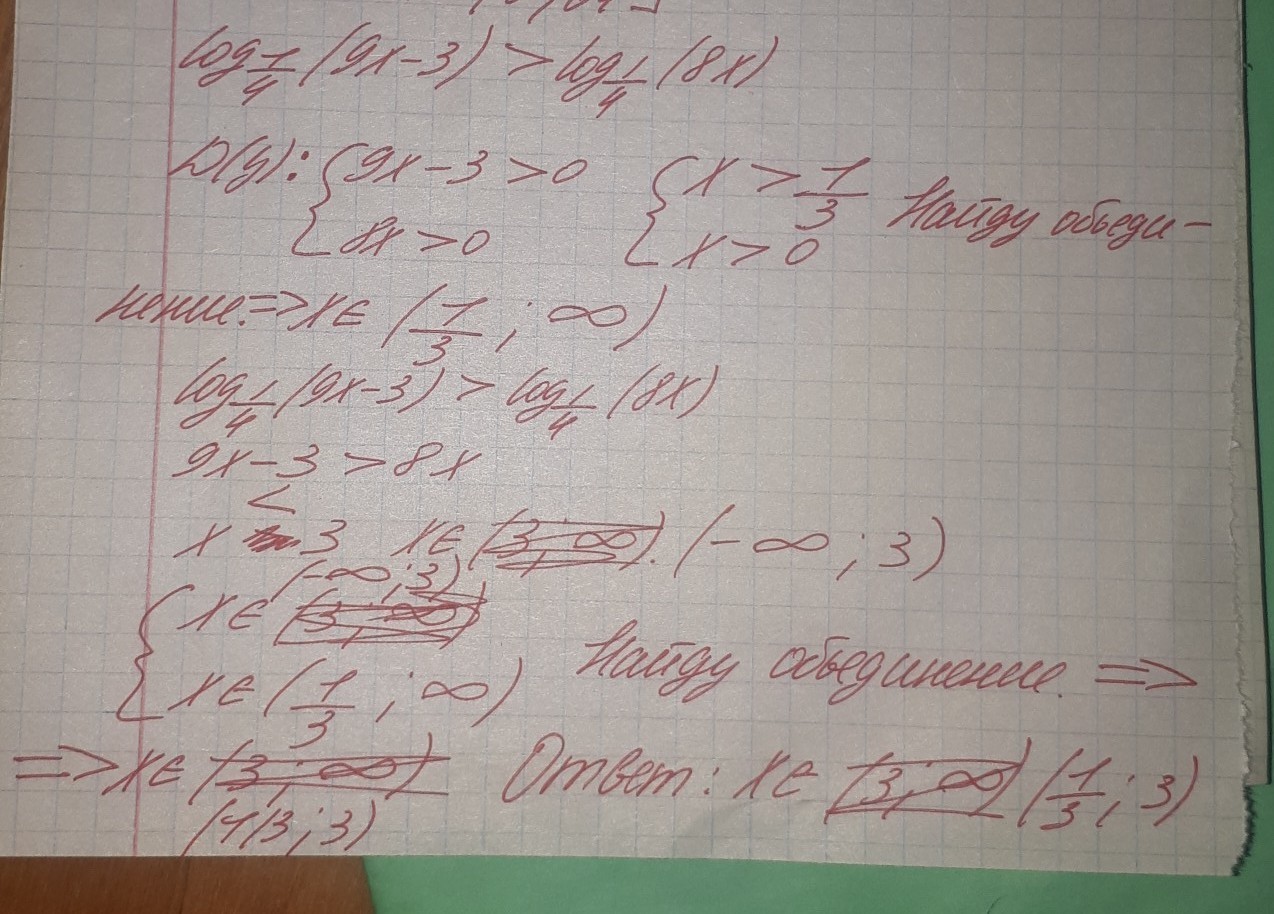 log 1/4 (9x-3) > log 1/4 (8x)
D(y): { 9x-3 > 0 { x > 1/3 Найду объеди-
8x > 0 x > 0
нение. => x ∈ (1/3 ; ∞)
log 1/4 (9x-3) > log 1/4 (8x)
9x-3 > 8x
<
x 3 x ∈ (3; ∞). (-∞ ; 3)
(-∞; 3)
{ x ∈ (3; ∞)
x ∈ (1/3 ; ∞) Найду объединение. =>
=> x ∈ (3; ∞) Ответ: x ∈ (3; ∞) (1/3 ; 3)
(1/3; 3)